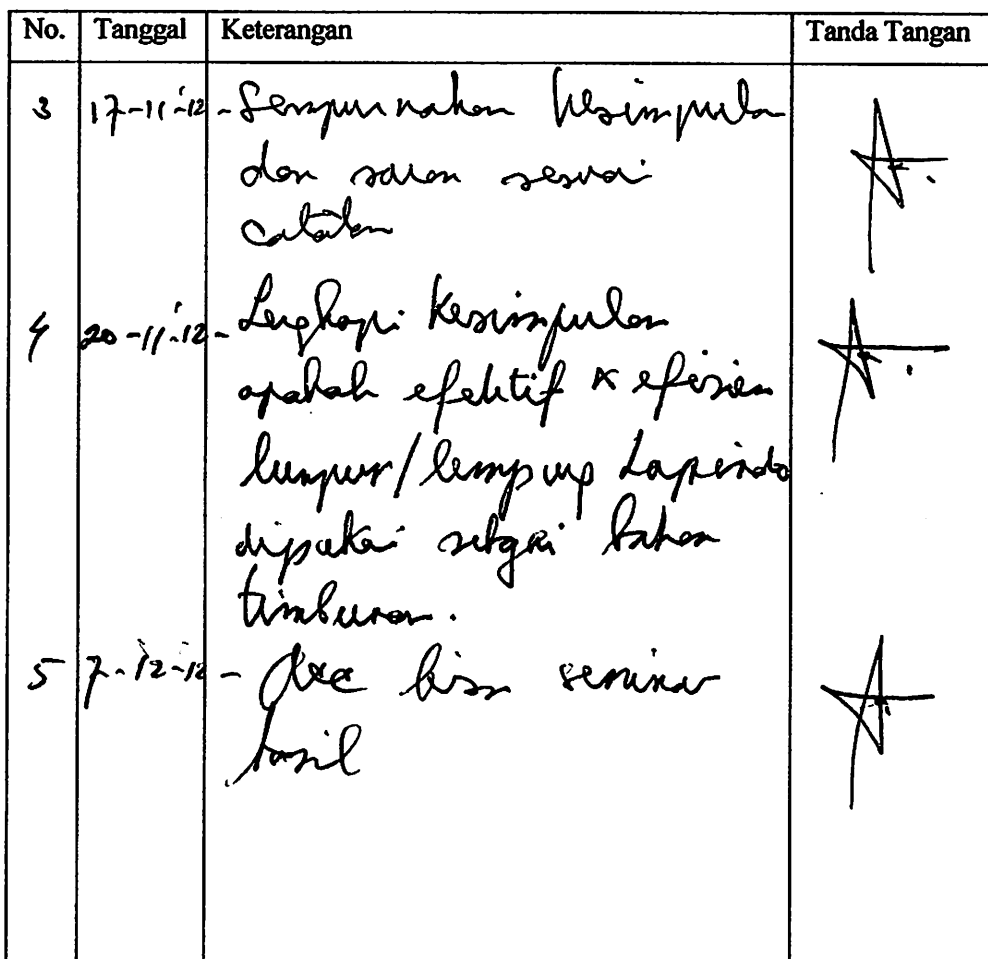 No. Tanggal Keterangan Tanda Tangan
3 17-11-'12 - Sempurnakan kesimpulan
dan saran sesuai
catatan
4 20-11-'12 - Lengkapi kesimpulan
apakah efektif & efisien
lumpur/lempung Lapindo
dipakai sebgai bahan
timbunan.
5 7-12-12 - Acc bisa seminar
hasil